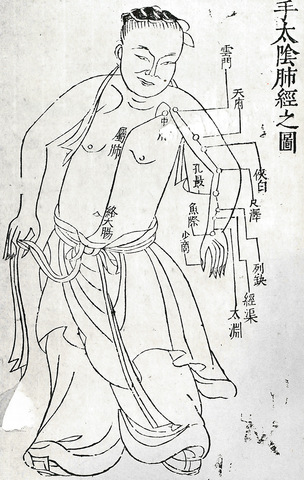 手太陰肺經之圖
雲門
天府
中
俠白
尺澤
孔最
屬肺
魚際
少商
絡大腸
列缺
經渠
太淵